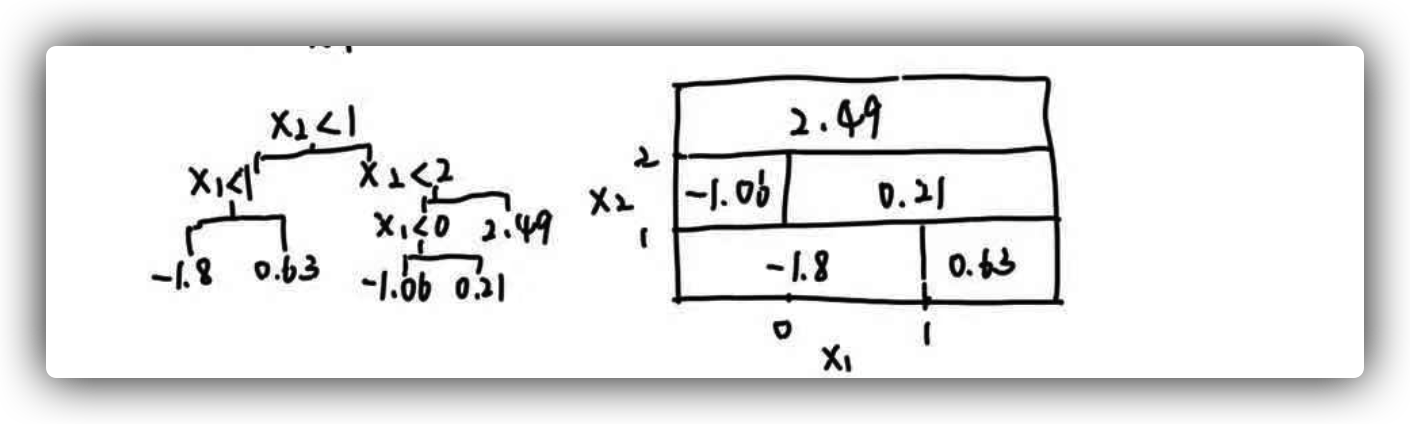 X2<1
X1<1 X2<2
X1<0 2.49
-1.8 0.63 -1.06 0.21
2.49
2
-1.06 0.21
X2
1
-1.8 0.63
0 1
X1